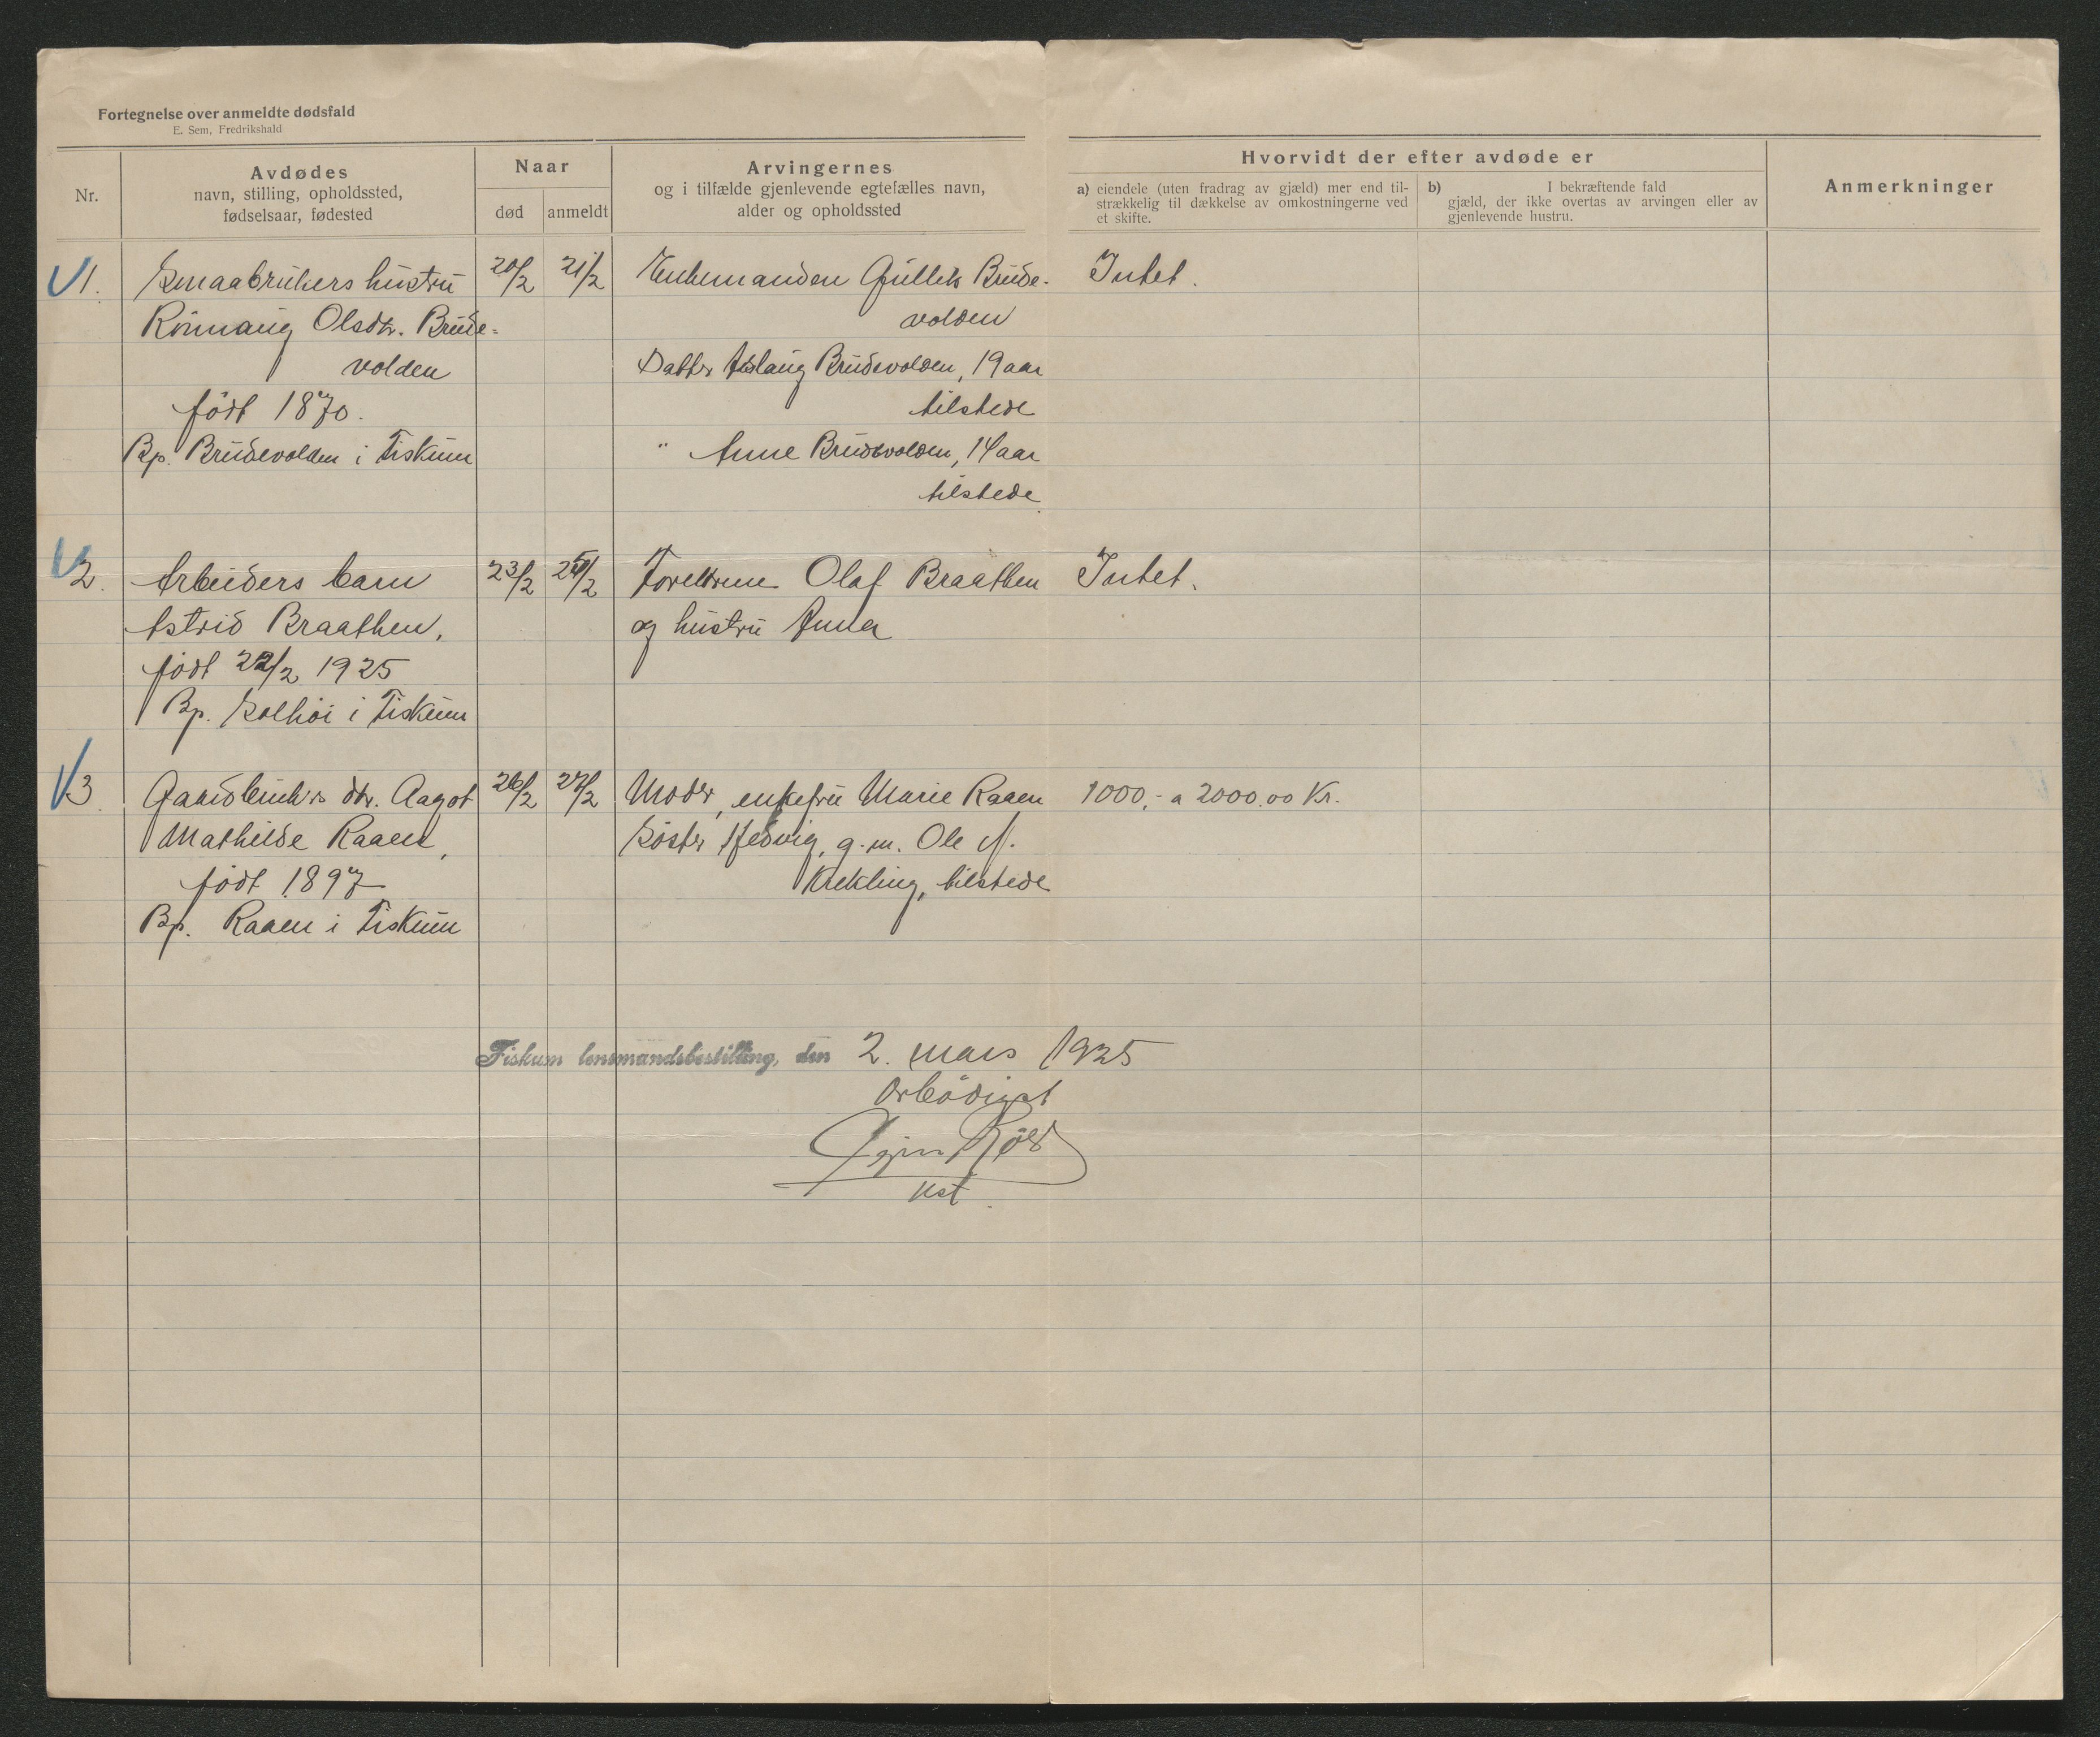 Fortegnelse over anmeldte dødsfald
E. Sem, Fredrikshald
Nr.
Avdødes
navn, stilling, opholdssted,
fødselsaar, fødested
Naar
død
anmeldt
Arvingernes
og i tilfælde gjenlevende egtefælles navn,
alder og opholdssted
Hvorvidt der efter avdøde er
a) eiendele (uten fradrag av gjæld) mer end til-
strækkelig til dækkelse av omkostningerne ved
et skifte.
b) I bekræftende fald
gjæld, der ikke overtas av arvingen eller av
gjenlevende hustru.
Anmerkninger
1. Smaabrukers hustru 20/2 21/2 Enkemanden Gullik Brude- Intet.
Rønnaug Olsdtr. Brude- volden
volden Datter Aslaug Brudevolden, 19 aar
født 1870. tilstede
Bp. Brudevolden i Fiskum " Anne Brudevolden, 14 aar
tilstede
2. Arbeiders barn 23/2 25/2 Foreldrene Olaf Braathen Intet.
Astrid Braathen, og hustru Anna
født 22/2 1925
Bp. Solhöi i Fiskum
3. Gaardbruker dtr. Aagot 26/2 27/2 Moder, enkefru Marie Raaen 1000,- a 2000.00 Kr.
Mathilde Raaen, Söster Hedvig, g.m. Ole N.
født 1897 Krekling, tilstede
Bp. Raaen i Fiskum
Fiskum lensmandsbestilling, den 2. mars 1925
Ærbödigst
kst.